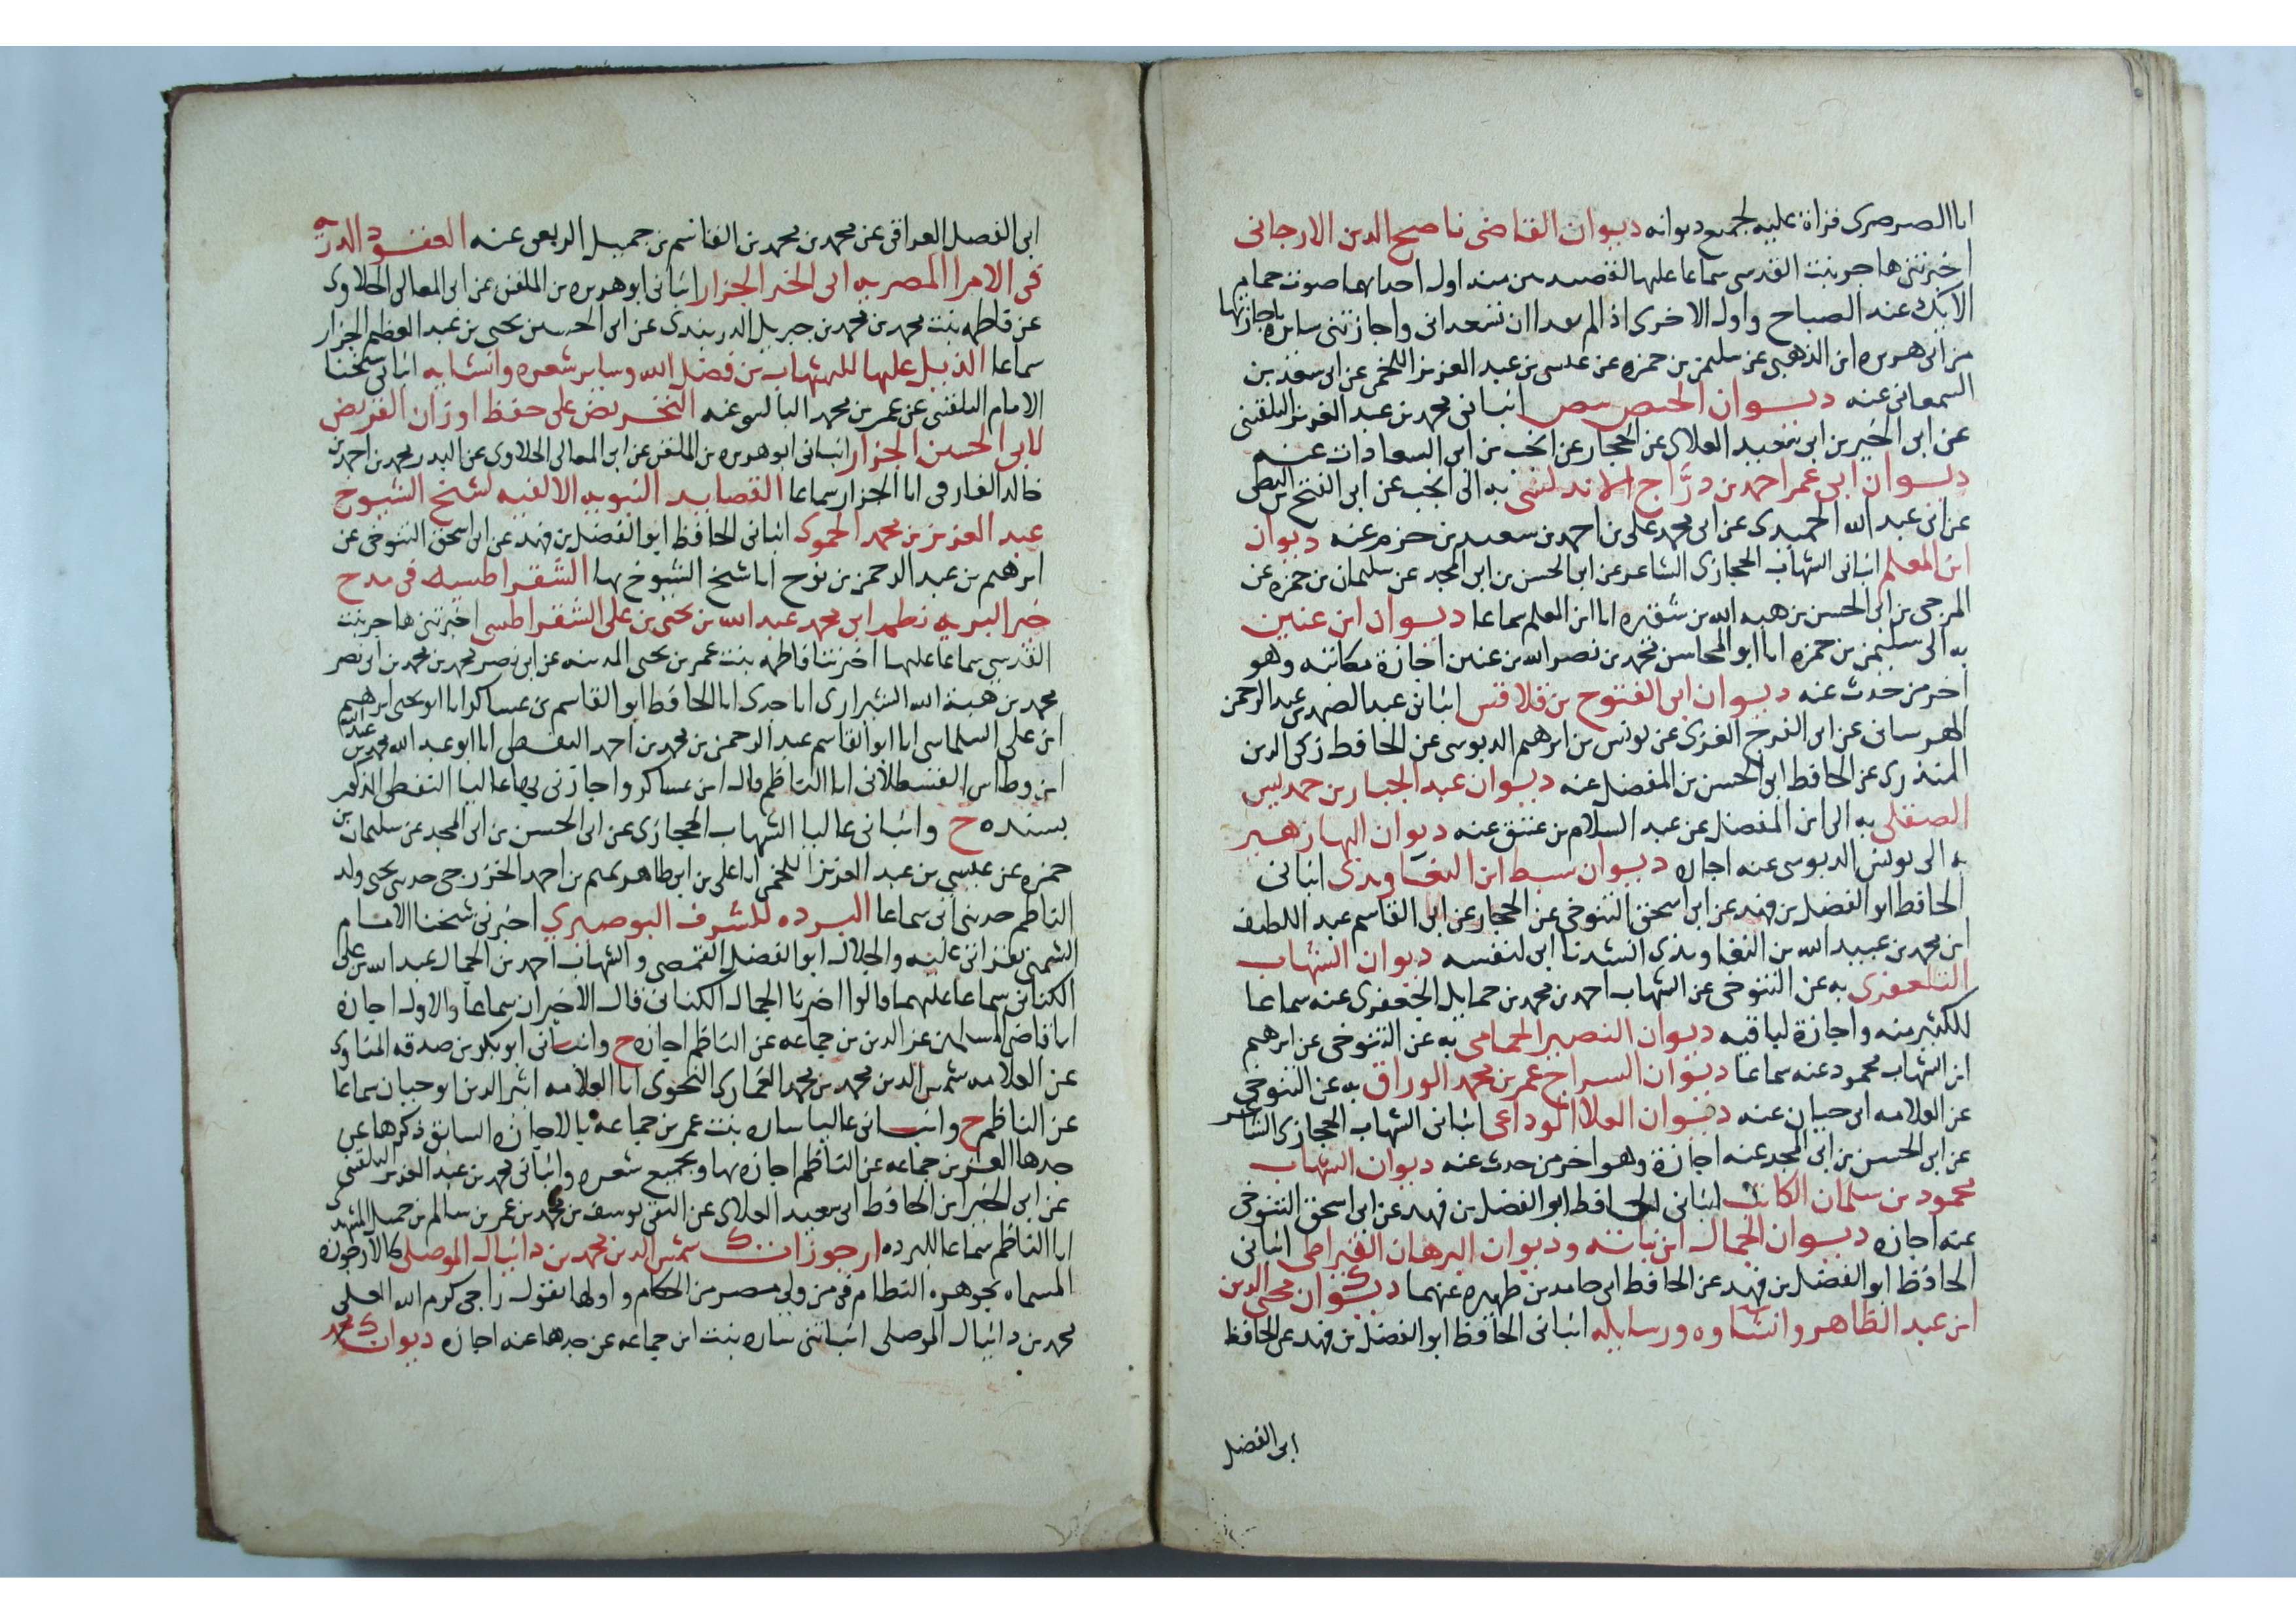 انا الصرصرى قراة عليه لجميع ديوانه ديوان القاضى ناصح الدين الارجانى
اخبرتنى هاجر بنت القدسى سماعا عليها لقصيدتين منه اول احداهما صوت حمام
الايك عند الصباح واول الاخرى اذا لم يعدا ان تسعدانى واجازتنى سايره باجازتها
من ابى هريره ابن الذهبى عن سليمن بن حمزه عن عيسى بن عبد العزيز اللخمى عن ابى سعد بن
السمعانى عنه ديوان الحيص بيص انبانى محمد بن عبد العزيز البلقينى
عن ابى الخير بن ابى سعيد العلاى عن الحجار عن الانجب بن ابى السعادات عنه
ديوان ابى عمر احمد بن درّاج الاندلسى به الى الانجب عن ابى الفتح بن البطى
عن ابى عبد الله الحميدى عن ابى محمد على بن احمد بن سعيد بن حزم عنه ديوان
ابن المعلم انبانى الشهاب الحجازى الشاعر عن ابى الحسن بن ابى المجد عن سليمان بن حمزه عن
المرجى بن ابى الحسن بن هبه الله بن شقيره انا ابن المعلم سماعا ديوان ابن عنين
به الى سليمن بن حمزه انا ابو المحاسن محمد بن نصر الله بن عنين اجازة مكاتبه وهو
اخر من حدث عنه ديوان ابى الفتوح بن قلاقس انبانى عبد الصمد بن عبد الرحمن
الهرسانى عن ابى الفرج الغزى عن يونس بن ابرهيم الدبوسى عن الحافظ زكى الدين
المنذرى عن الحافظ ابى الحسن بن المفضل عنه ديوان عبد الجبار بن حمديس
الصقلى به الى ابن المفضل عن عبد السلام بن عتيق عنه ديوان البها زهير
به الى يونس الدبوسى عنه اجازه ديوان سبط ابن التعاويذى انبانى
الحافظ ابو الفضل بن فهد عن ابى اسحق التنوخى عن الحجار عن ابى القاسم عبد اللطيف
ابن محمد بن عبيد الله بن التعاويذى انشدنا ابى لنفسه ديوان الشهاب
التلعفرى به عن التنوخى عن الشهاب احمد بن محمد بن حمايل الجعفرى عنه سماعا
للكثير منه واجازة لباقيه ديوان النصير الحمامى به عن التنوخى عن ابرهيم
ابن الشهاب محمود عنه سماعا ديوان السراج عمر بن محمد الوراق به عن التنوخى
عن العلامه ابى حيان عنه ديوان العلا الوداعى انبانى الشهاب الحجازى الشاعر
عن ابى الحسن بن ابى المجد عنه اجازة وهو اخر من حدث عنه ديوان الشهاب
محمود بن سلمان الكاتب انبانى الحافظ ابو الفضل بن فهد عن ابى اسحق التنوخى
عنه اجازه ديوان الجمال ابن نباته وديوان البرهان القيراطى انبانى
الحافظ ابو الفضل بن فهد عن الحافظ ابى حامد بن ظهيره عنهما ديوان محيى الدين
ابن عبد الظاهر وانشاوه ورسايله انبانى الحافظ ابو الفضل بن فهد عن الحافظ
ابى الفضل
ابى الفضل العراقى عن محمد بن محمد بن القاسم بن جميل الربعى عنه العقود الدريه
فى الامرا المصريه لابى الحسن الجزار انبانى ابو هريره بن الملقن عن ابى المعالى الحلاوى
عن فاطمه بنت محمد بن محمد بن جبريل الدربندى عن ابى الحسين يحيى بن عبد العظيم الجزار
سماعا الذيل عليها للشهاب بن فضل الله وساير شعره وانشايه انبانى شيخنا
الامام البلقينى عن عمر بن محمد البالسى عنه التحريض على حفظ اوزان القريض
لابى الحسن الجزار انبانى ابو هريره بن الملقن عن ابى المعالى الحلاوى عن البدر محمد بن احمد بن
خالد الفارقى انا الجزار سماعا القصايد النبويه الالفيه لشيخ الشيوخ
عبد العزيز بن محمد الحموى انبانى الحافظ ابو الفضل بن فهد عن ابى اسحق التنوخى عن
ابرهيم بن عبد الرحمن بن نوح انا شيخ الشيوخ بها الشقراطسيه فى مدح
خير البريه نظم ابى محمد عبد الله بن يحيى بن على الشقراطسى اخبرتنى هاجر بنت
القدسى سماعا عليها اخبرتنا فاطمه بنت عمر بن يحيى المدنيه عن ابى نصر محمد بن محمد بن ابى نصر
محمد بن هبة الله الشيرازى انا جدى انا الحافظ ابو القاسم بن عساكر انا ابو يحيى ابرهيم
ابن على السلماسى انا ابو القاسم عبد الرحمن بن محمد بن احمد النفطى انا ابو عبد الله محمد بن عبد الله
ابن وطاس القسطلانى انا الناظم قال ابن عساكر واجازنى بها عاليا النفطى المذكور
بسنده ح وانبانى عاليا الشهاب الحجازى عن ابى الحسن بن ابى المجد عن سليمان بن
حمزه عن عيسى بن عبد العزيز اللخمى انا على بن ابى طاهر تميم بن احمد الخزرجى حدثنى يحيى ولد
الناظم حدثنى ابى سماعا البرده للشرف البوصيري اخبرنى شيخنا الامام
الشمنى بقراتى عليه والجلال ابو الفضل القمصى والشهاب احمد بن الجمال عبد الله بن على
الكنانى سماعا عليهما قالوا اخبرنا الجمال الكنانى قال الاخيران سماعا والاول اجازه
انا قاضى المسلمين عز الدين بن جماعه عن الناظم اجازه ح وانبانى ابو بكر بن صدقه المناوى
عن العلامه شمس الدين محمد بن محمد الغمارى النحوى انا العلامه اثير الدين ابو حيان سماعا
عن الناظم ح وانبانى عاليا ساره بنت عمر بن جماعه بالاجازه السابق ذكرها عن
جدها العز بن جماعه عن الناظم اجازه بها وبجميع شعره وانبانى محمد بن عبد العزيز البلقينى
عن ابى الخير ابن الحافظ ابى سعيد العلاى عن التقى يوسف بن محمد بن عمر بن سالم بن جميل المشهدى
انا الناظم سماعا للبرده ارجوزات شمس الدين محمد بن دانيال الموصلى كالارجوزه
المسماه بجوهره النظام فى من ولى مصر من الحكام واولها يقول راجى كرم الله العلى
محمد بن دانيال الموصلى انباتنى ساره بنت ابن جماعه عن جدها عنه اجازه ديوان محمد